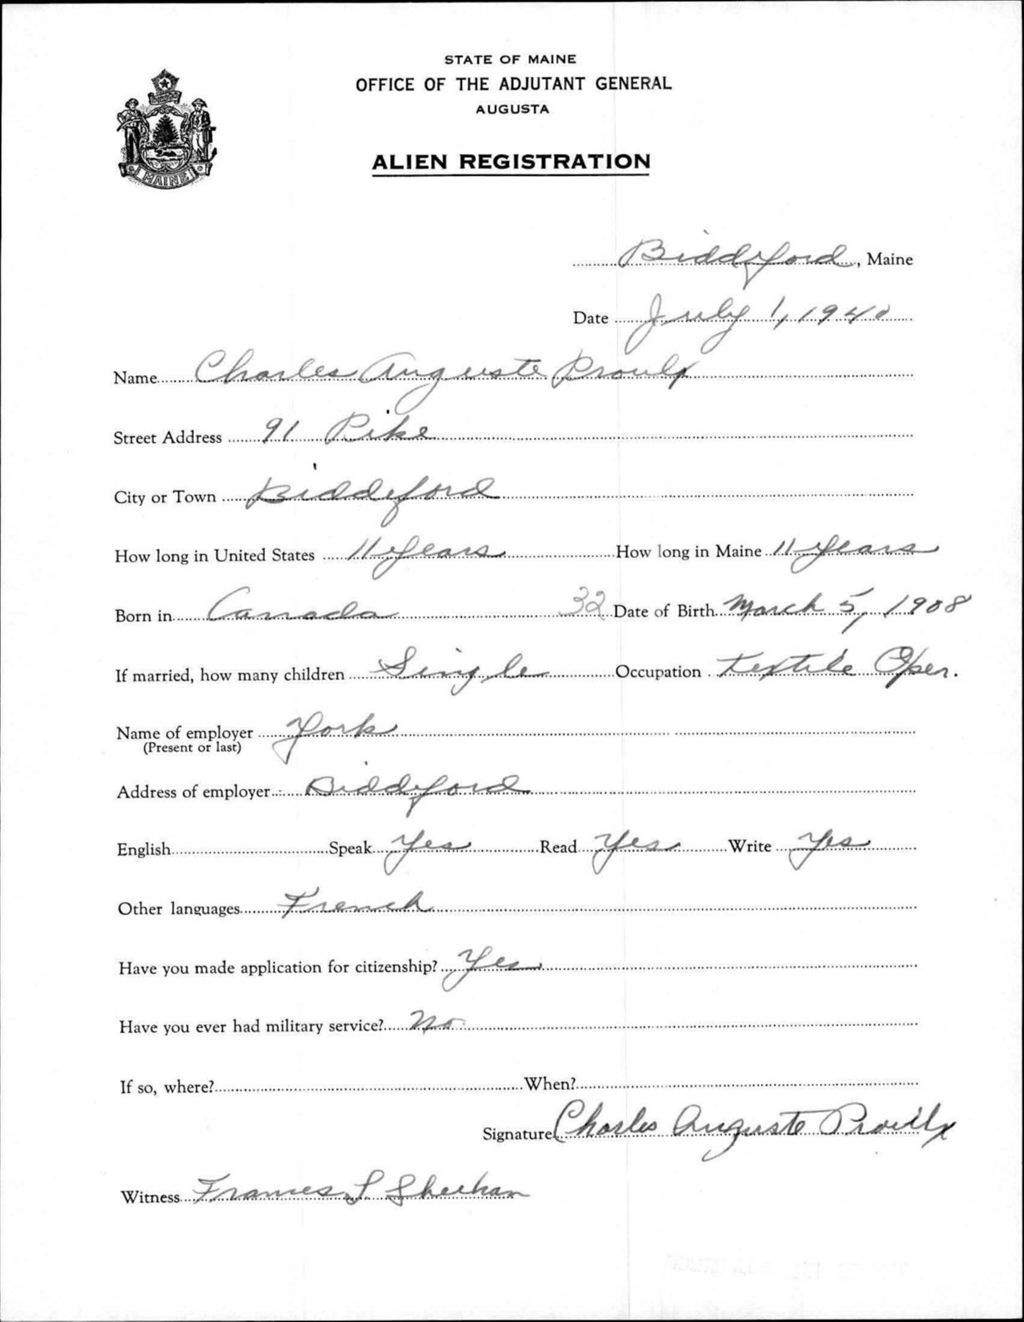 STATE OF MAINE
OFFICE OF THE ADJUTANT GENERAL
AUGUSTA
MAINE
ALIEN REGISTRATION
Biddeford, Maine
Date July 1, 1940
Name Charles Auguste Proulx
Street Address 91 Pike
City or Town Biddeford
How long in United States 11 years How long in Maine 11 years
Born in Canada 32 Date of Birth March 5, 1908
If married, how many children Single Occupation Textile Oper.
Name of employer York
(Present or last)
Address of employer Biddeford
English Speak Yes Read Yes Write Yes
Other languages French
Have you made application for citizenship? Yes
Have you ever had military service? No
If so, where? When?
Signature Charles Auguste Proulx
Witness Frances L Sheehan